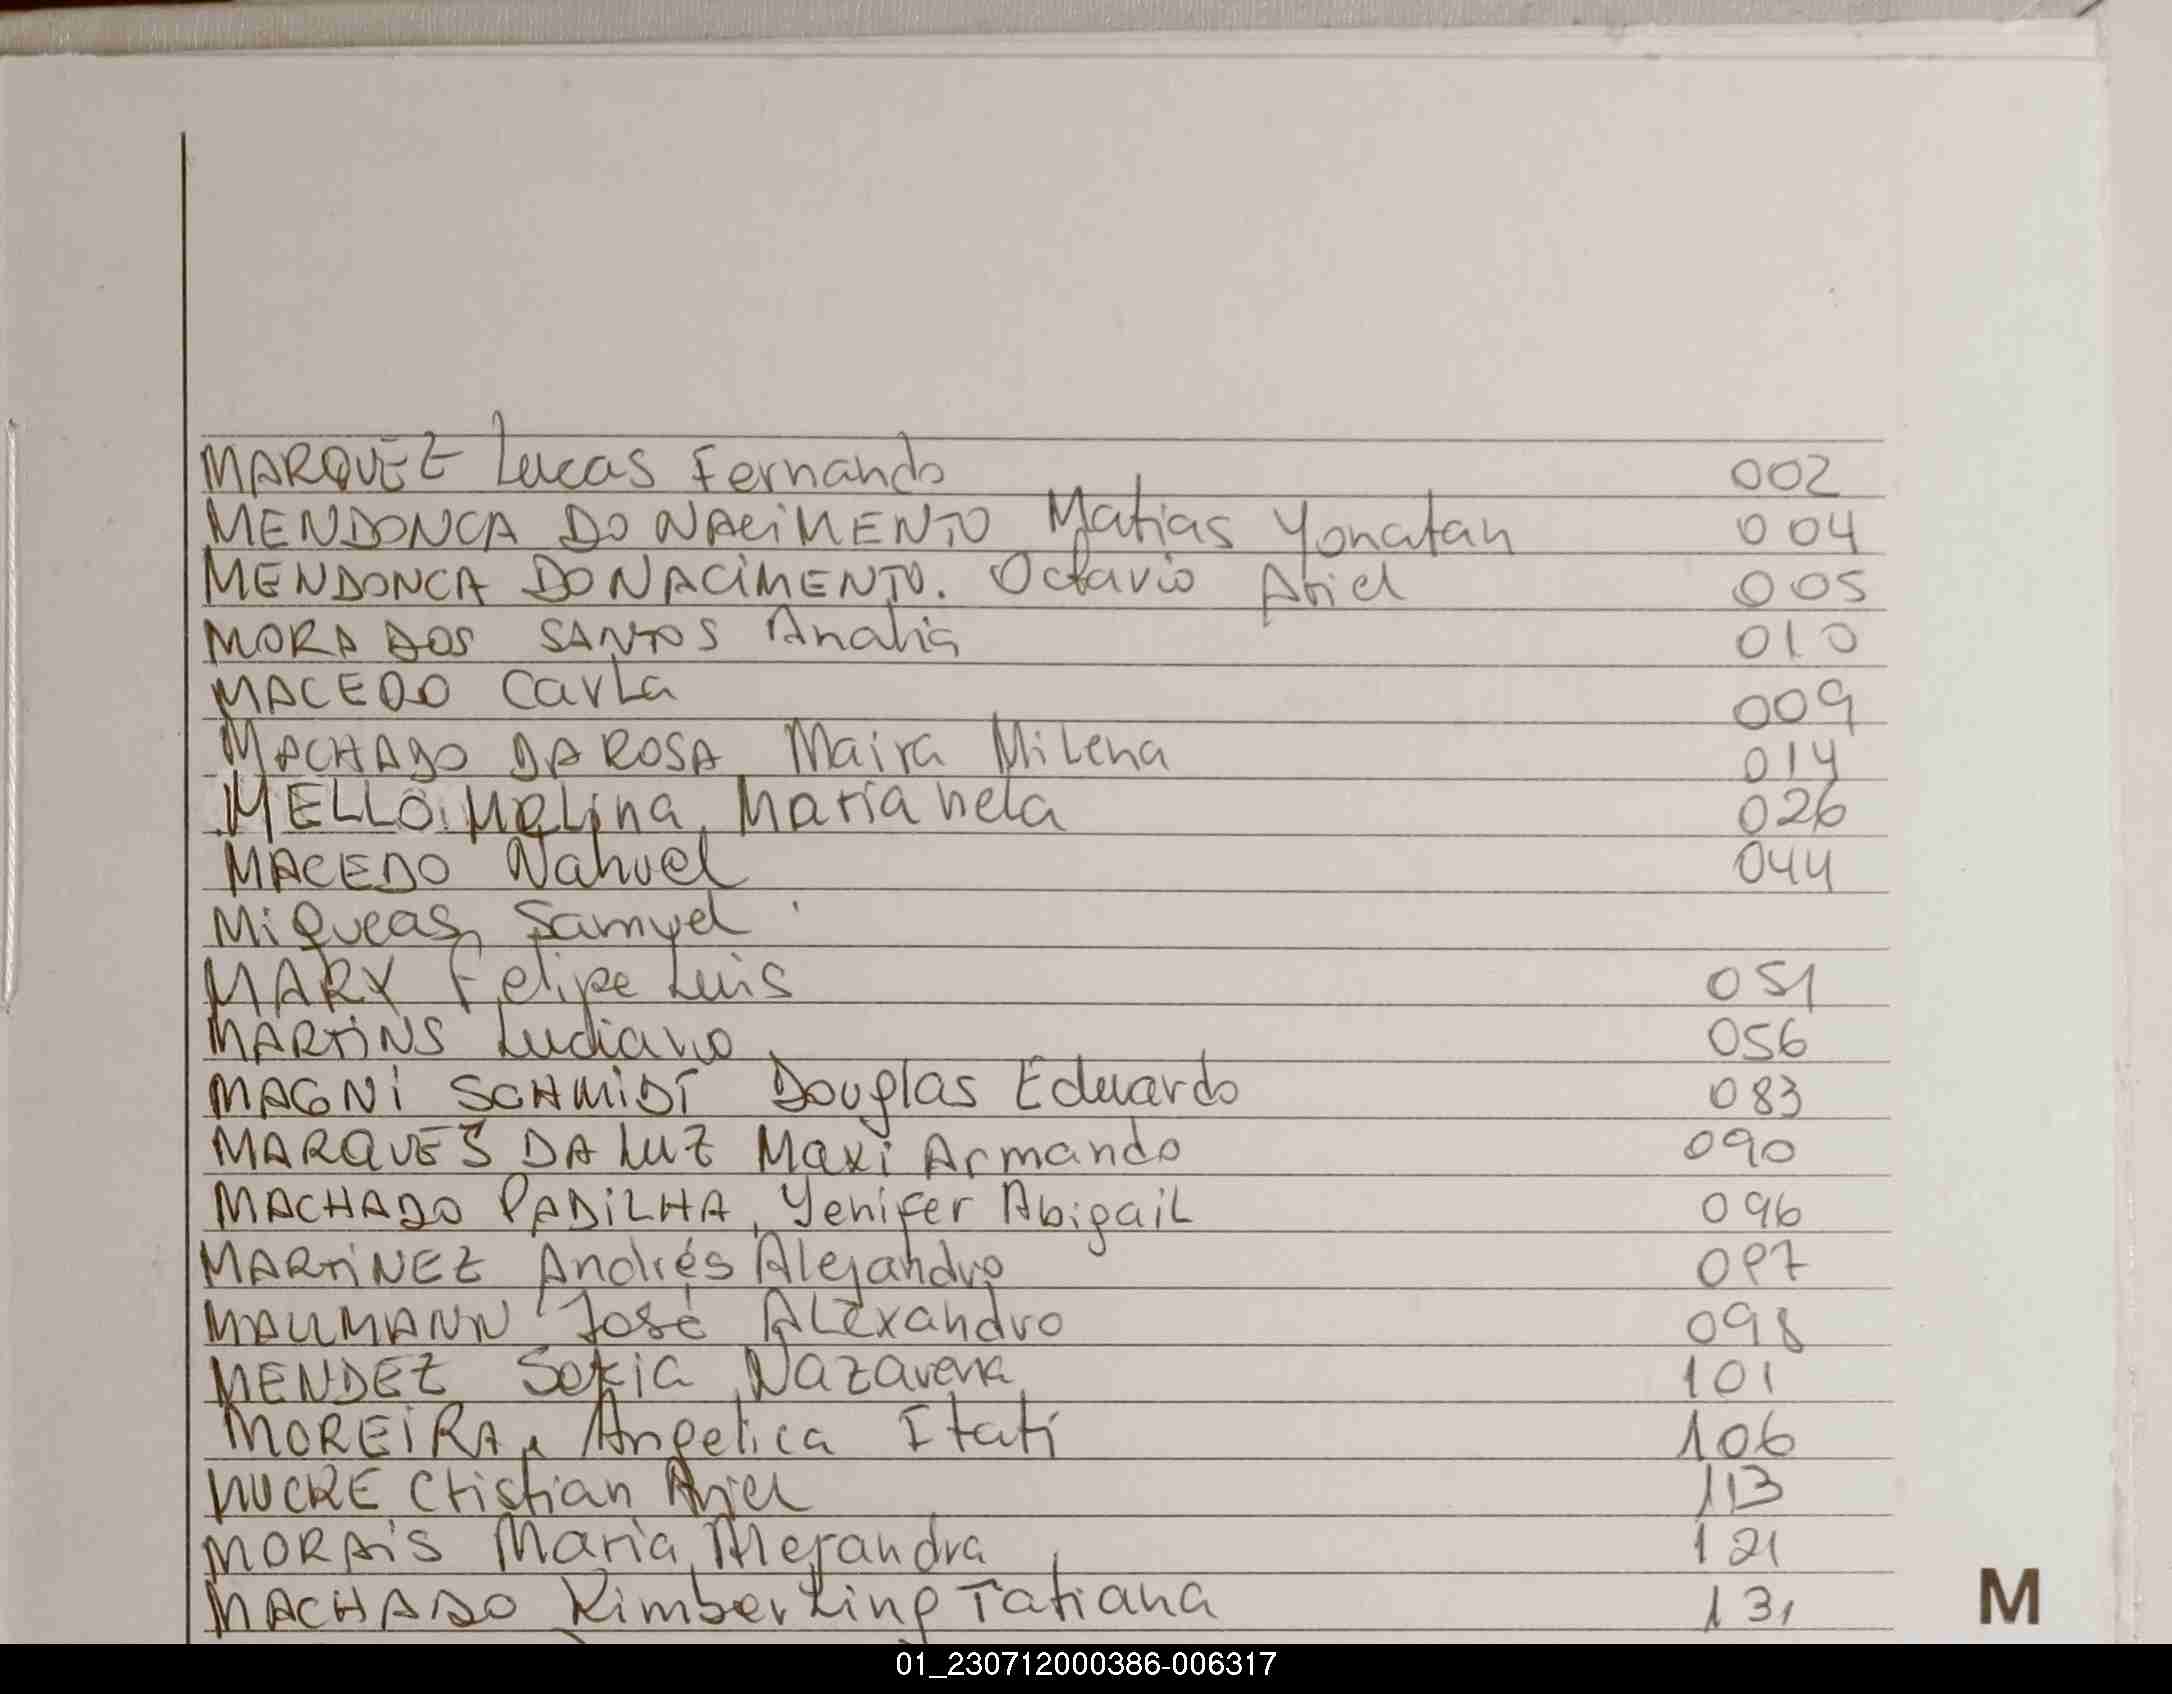 MARQUEZ Lucas Fernando 002
MENDONCA DO NACIMENTO Matias Yonatan 004
MENDONCA DO NACIMENTO. Octavio Ariel 005
MORA DOS SANTOS Analia 010
MACEDO Carla 009
MACHADO DA ROSA Maira Milena 014
MELLO Melina Marianela 026
MACEDO Nahuel 044
Miqueas Samuel
MARX Felipe Luis 051
MARTINS Luciano 056
MAGNI SCHMIDT Douglas Eduardo 083
MARQUES DA LUZ Maxi Armando 090
MACHADO PADILHA, Yenifer Abigail 096
MARTINEZ Andrés Alejandro 097
MALLMANN José Alexandro 098
MENDEZ Sofia Nazarena 101
MOREIRA, Angelica Itatí 106
MUCKE Cristian Ariel 113
MORAIS Maria Alejandra 121
MACHADO Tatiana 131
M
01_230712000386-006317